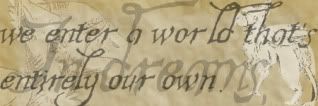 we enter a world that's
In dreams
entirely our own.